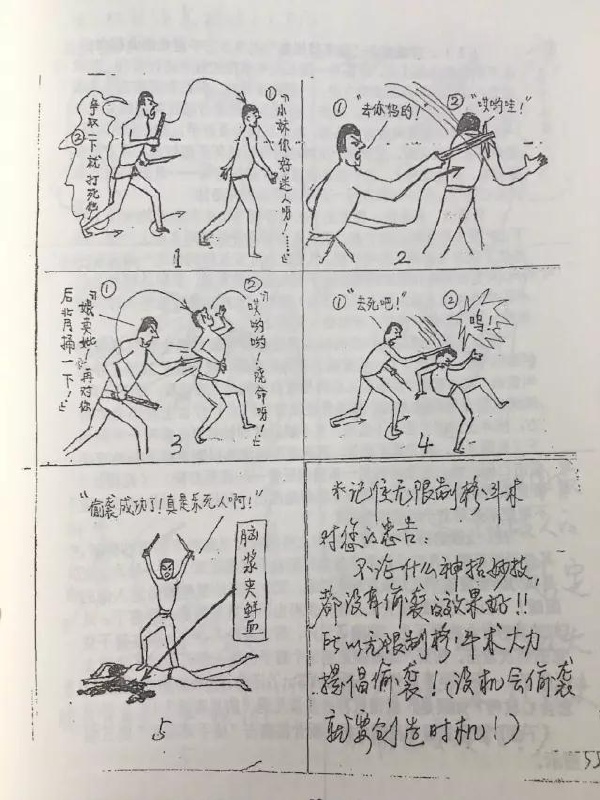 ①"小妹你好迷人呀!……"
②争取一下就打死他
1
①"去你妈的!"
②"哎哟哇!"
2
①"娘卖屄!再对你后背捅一下!"
②"哎哟哟!饶命呀!"
3
①"去死吧!"
②呜!
4
"偷袭成功了!真是乐死人啊!"
脑浆夹鲜血
5
无限制格斗术
对您的忠告:
不论什么神招妙技,
都没有偷袭的效果好!!
所以无限制格斗术大力
提倡偷袭!(没机会偷袭
就要创造时机!)
55